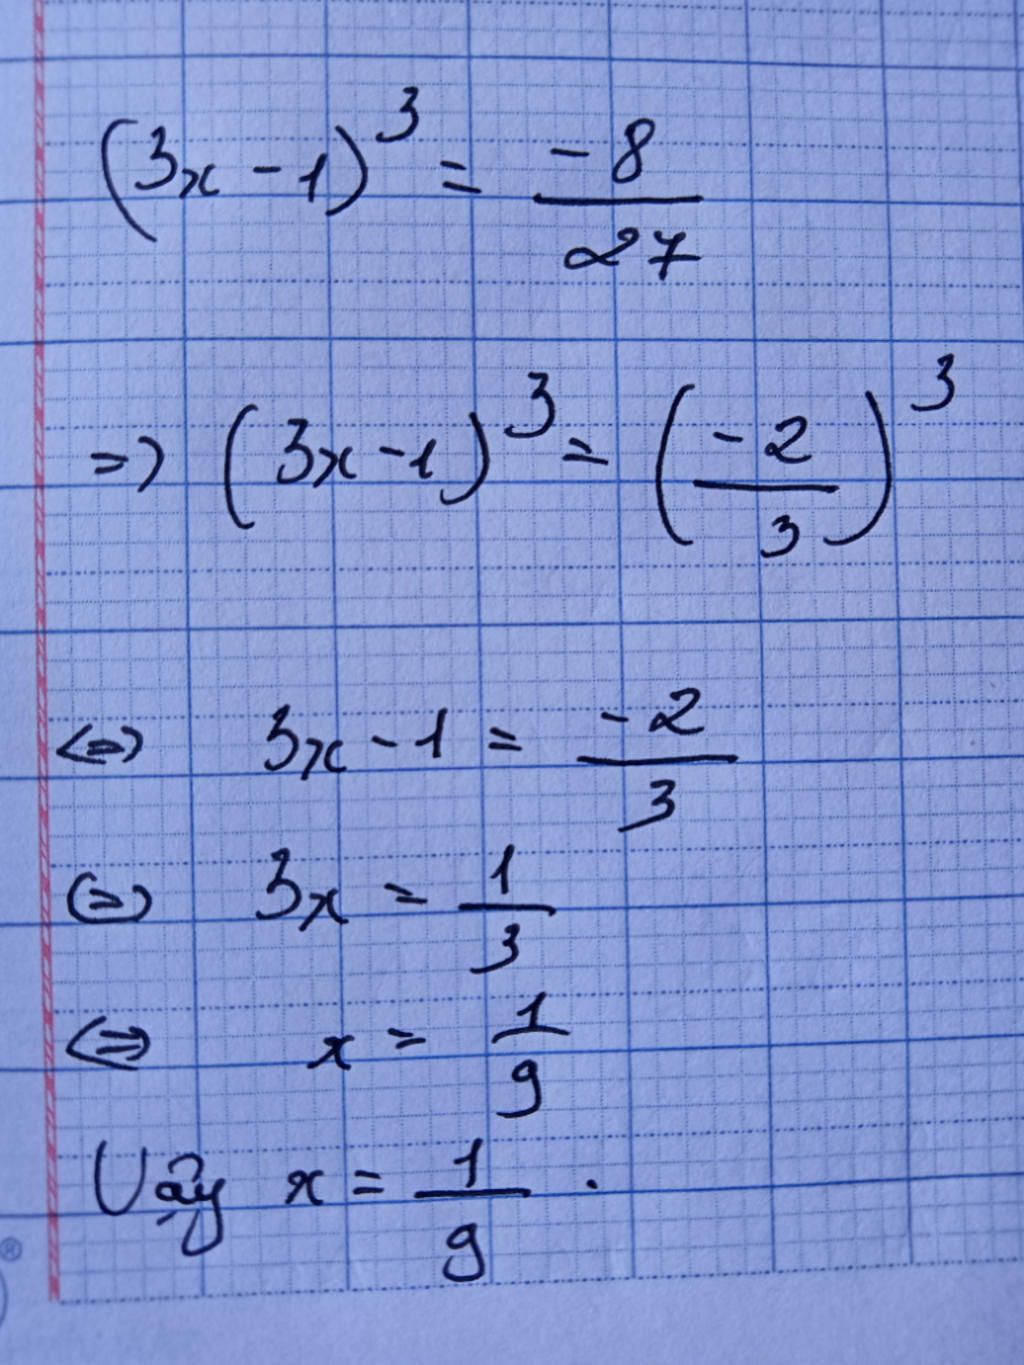 (3x - 1)³ = -8/27
=> (3x - 1)³ = (-2/3)³
<=> 3x - 1 = -2/3
<=> 3x = 1/3
<=> x = 1/9
Vậy x = 1/9 .
®